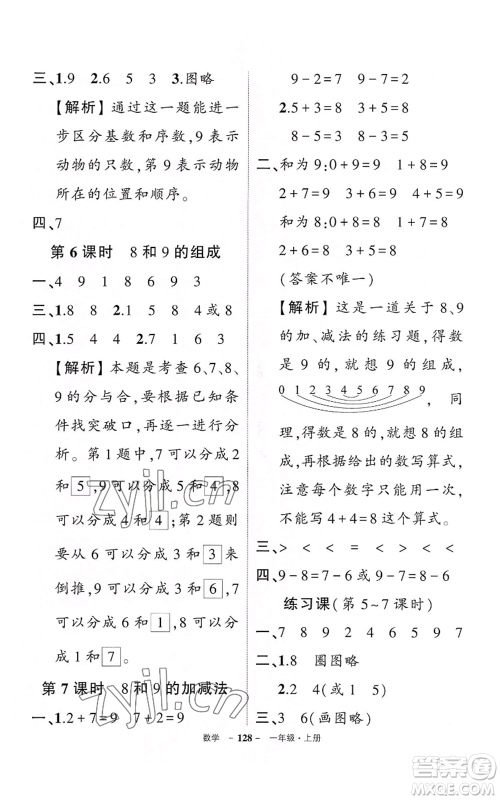 三、1.9　2.6　5　3　3.图略
【解析】通过这一题能进一
步区分基数和序数,9 表示
动物的只数,第 9 表示动物
所在的位置和顺序。
四、7
第 6 课时　8 和 9 的组成
一、4　9　1　8　6　9　3
三、1.8　8　2.1　5　4 或 8
四、1.5　4　4　2.7　1　6　3
【解析】本题是考查 6、7、8、
9 的分与合,要根据已知条
件找突破口,再逐一进行分
析。第 1 题中,7 可以分成 2
和 5 ,9 可以分成 5 和 4 ,8
可以分成 4 和 4 ;第 2 题则
要从 6 可以分成 3 和 3 来
倒推,9 可以分成 3 和 6,7
可以分成 6 和 1 ,8 可以分
成 1 和 7 。
第 7 课时　8 和 9 的加减法
一、1.2+7=9　7+2=9
9-2=7　9-7=2
2.5+3=8　3+5=8
8-3=5　8-5=3
二、和为 9:0+9=9　1+8=9
2+7=9　3+6=9　4+5=9
和为 8:0+8=8　1+7=8
2+6=8　3+5=8
(答案不唯一)
【解析】这是一道关于 8、9
的加、减法的练习题,得数
是 9 的,就想 9 的组成,
0 1 2 3 4 5 6 7 8 9
,同
理,得数是 8 的,就想 8 的组
成,再根据给出的数写算式,
注意每个数字只能用一次,
不能写 4+4=8 这个算式。
三、>　<　=　<　<　<
四、9-8=7-6 或 9-7=8-6
练习课(第 5~7 课时)
一、7　9　8　4　6　5　2　9　7
二、1.8　圈图略
2.4(或 4　1　5)
三、3　6(画图略)
数学　－ 128 －　一年级·上册
zyjl.cn
zyjl.cn